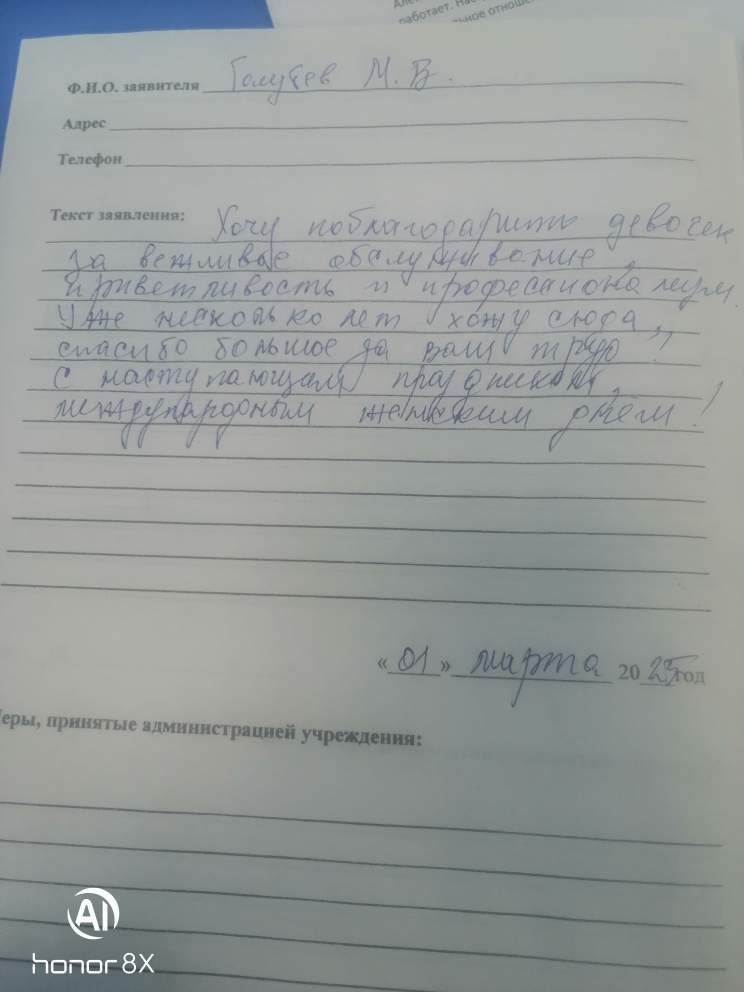 работает. Нас
льное отношен
Ф.И.О. заявителя Голубев М.В.
Адрес
Телефон
Текст заявления: Хочу поблагодарить девочек
за вежливое обслуживание,
приветливость и професионализм.
Уже несколько лет хожу сюда,
спасибо большое за ваш труд!!
С наступающим праздником,
международным женским днём!
«01» марта 2025год
Меры, принятые администрацией учреждения:
AI
honor 8X